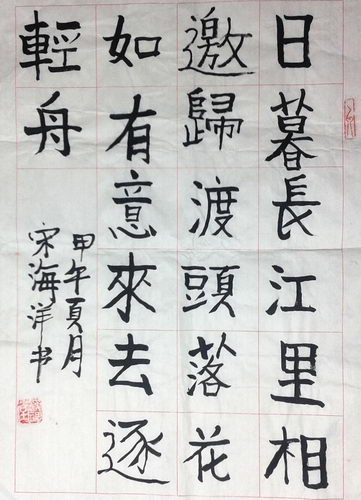 日暮長江里相
邀歸渡頭落花
如有意來去逐
輕舟
甲午夏月
宋海洋书